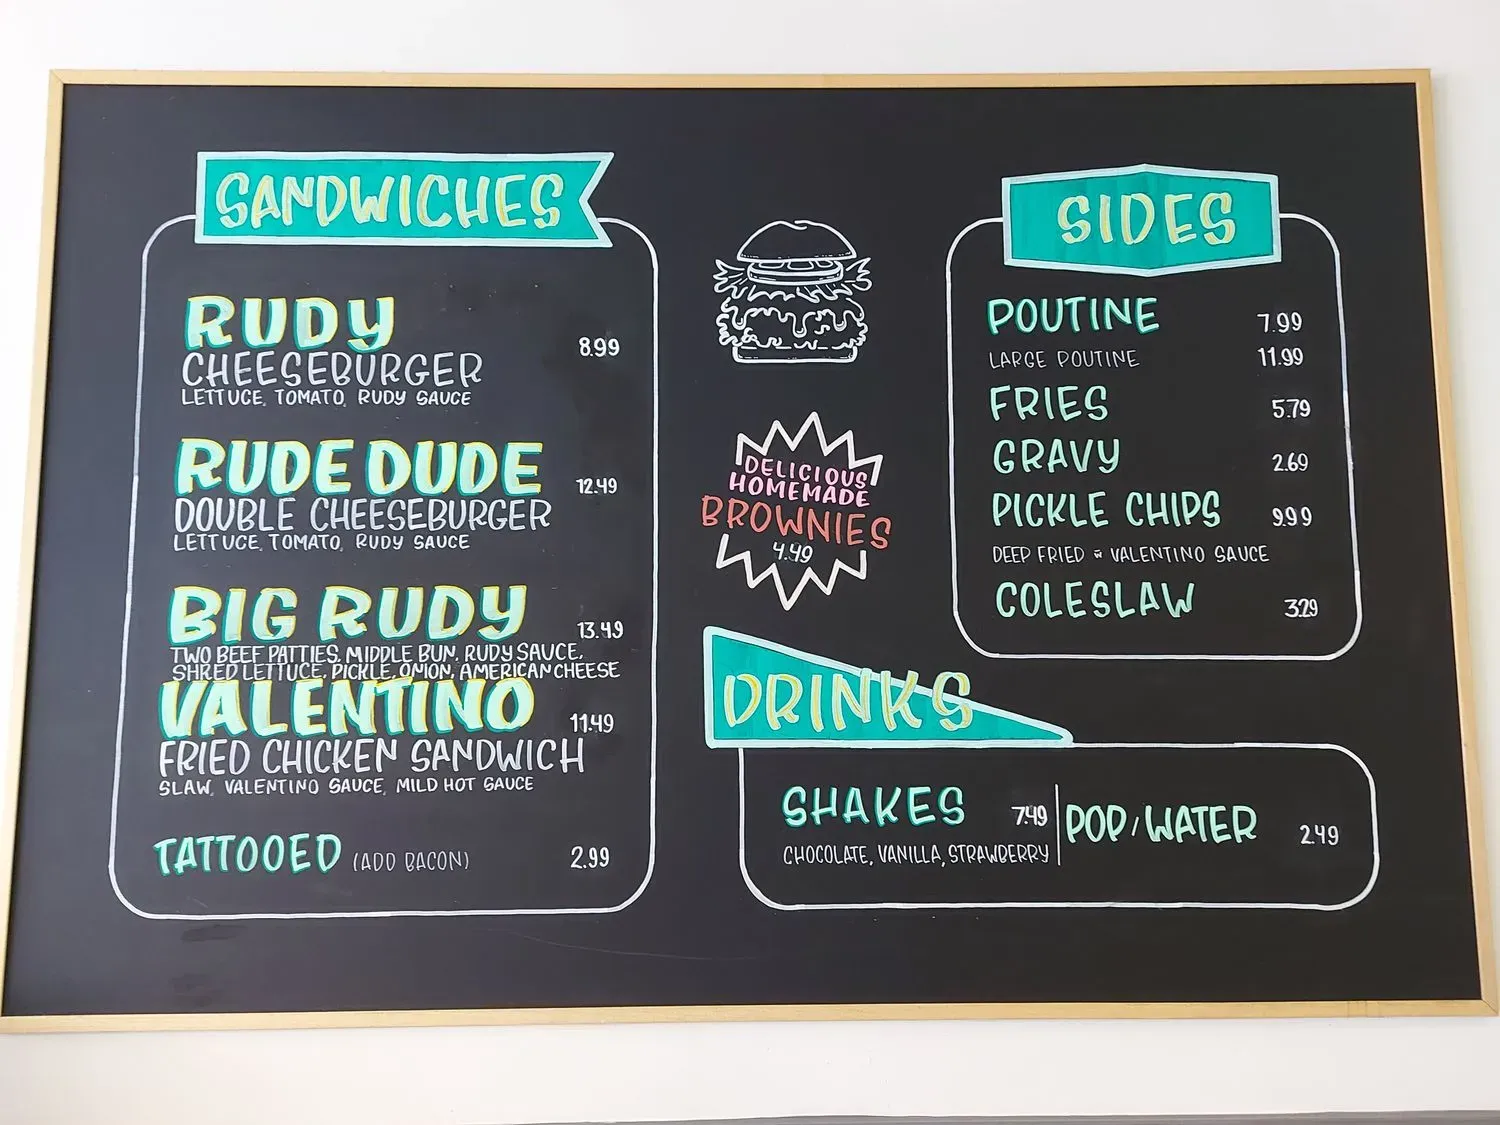 SANDWICHES
RUDY
CHEESEBURGER 8.99
LETTUCE, TOMATO, RUDY SAUCE
RUDE DUDE
DOUBLE CHEESEBURGER 12.49
LETTUCE, TOMATO, RUDY SAUCE
BIG RUDY 13.49
TWO BEEF PATTIES, MIDDLE BUN, RUDY SAUCE,
SHRED LETTUCE, PICKLE, ONION, AMERICAN CHEESE
VALENTINO 11.49
FRIED CHICKEN SANDWICH
SLAW, VALENTINO SAUCE, MILD HOT SAUCE
TATTOOED (ADD BACON) 2.99
DELICIOUS
HOMEMADE
BROWNIES
4.49
SIDES
POUTINE 7.99
LARGE POUTINE 11.99
FRIES 5.79
GRAVY 2.69
PICKLE CHIPS 9.99
DEEP FRIED w VALENTINO SAUCE
COLESLAW 3.29
DRINKS
SHAKES 7.49
CHOCOLATE, VANILLA, STRAWBERRY
POP/WATER 2.49